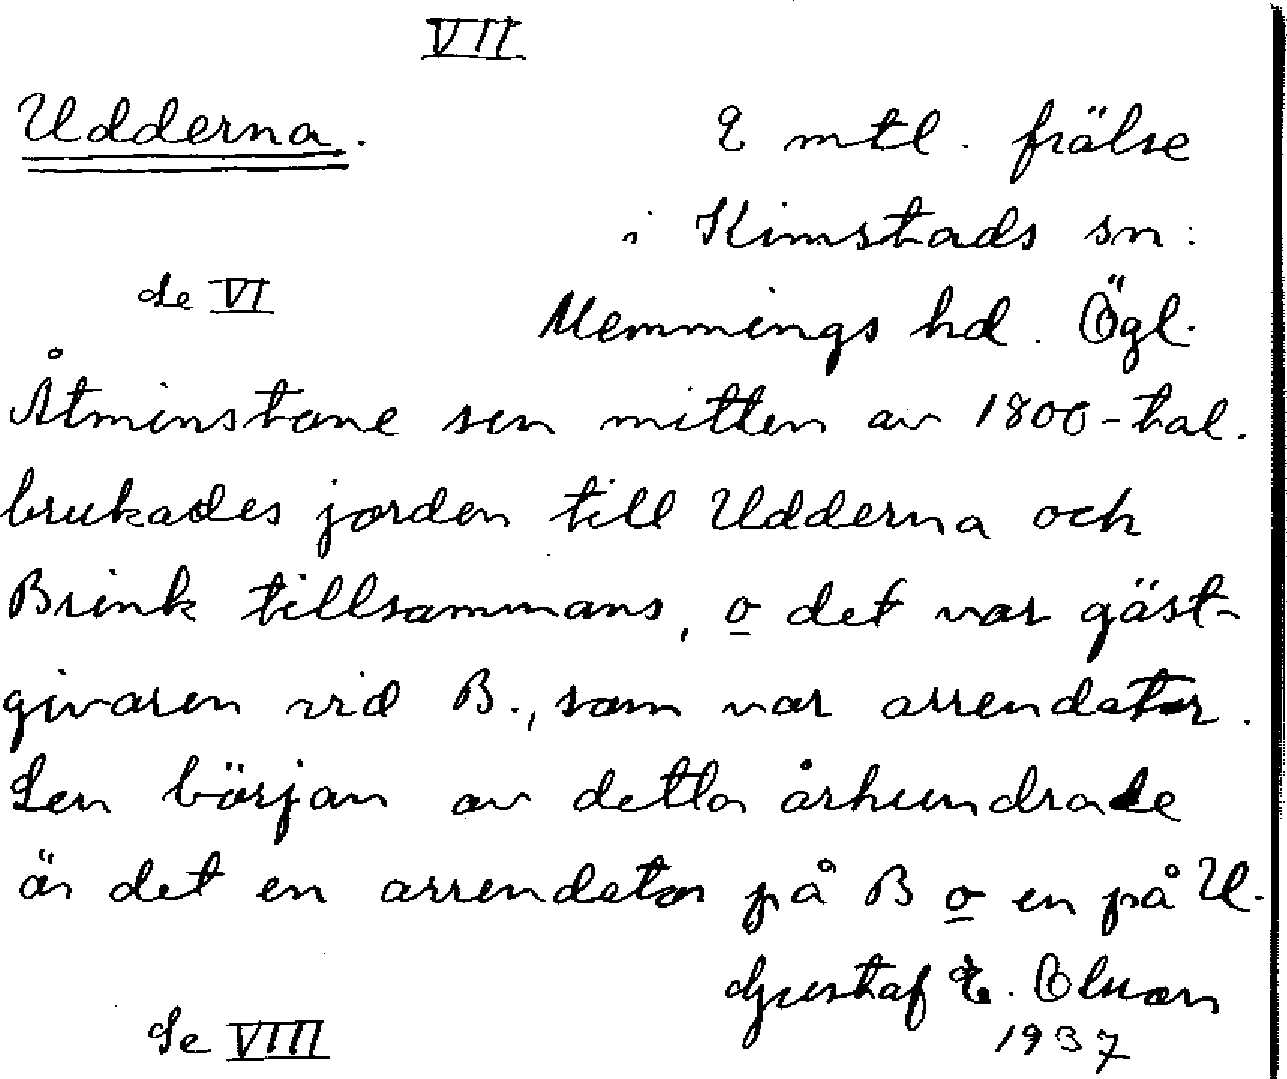 VII
Udderna. 2 mtl. frälse
i Kimstads sn:
Se VI
Memmings hd. Ögl.
Åtminstone sen mitten av 1800-tal.
brukades jorden till Udderna och
Brink tillsammans, o det var gäst-
givaren vid B., som var arrendator.
Sen början av detta århundrade
är det en arrendator på B o en på U.
Gustaf E. Olsson
1937
Se VIII